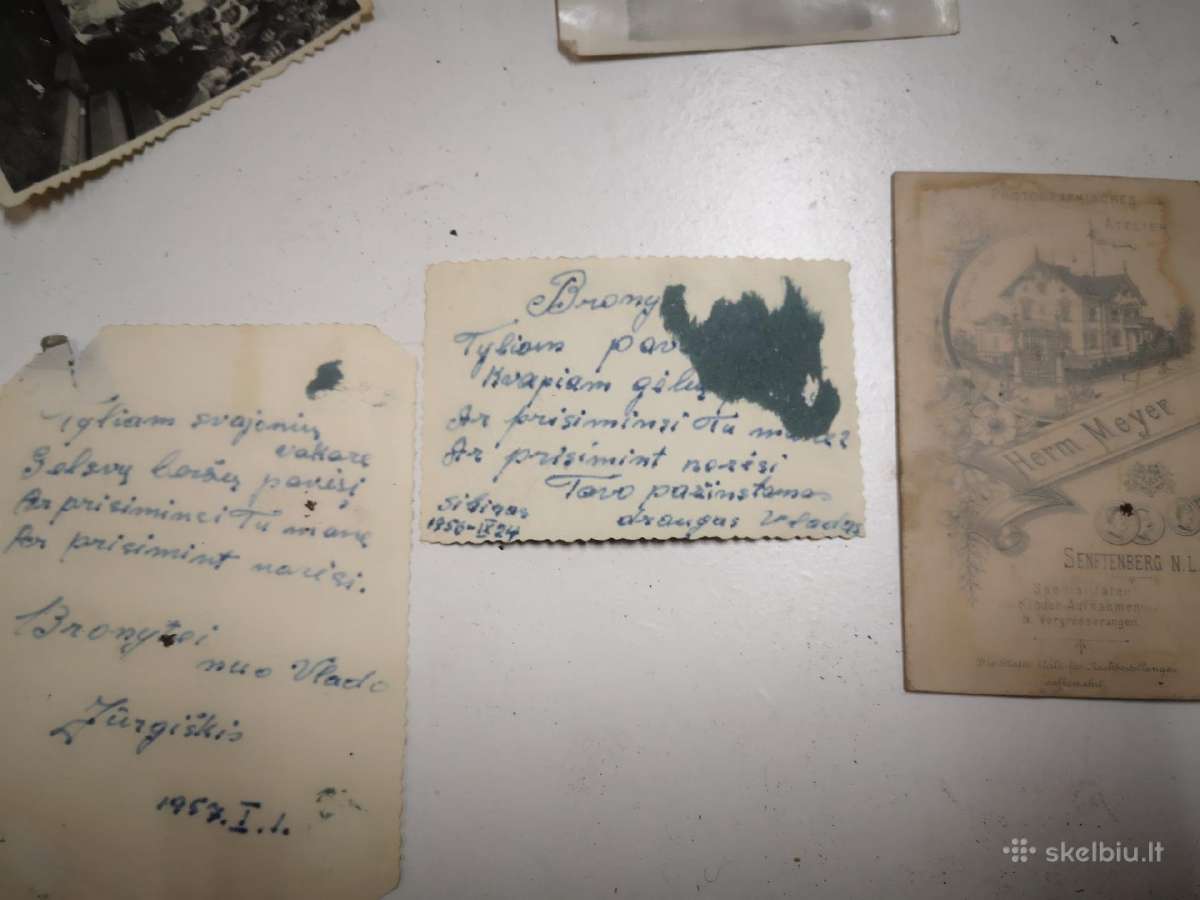 Tyliam svajonių
vakare
Gelsvų beržų pavėsį
Ar prisiminsi Tu mane
Ar prisimint norėsi.
Bronytei
nuo Vlado
Jūrgiškis
1957.I.1.
Brony
Tyliam pav
Kvapiam gėlių
Ar prisiminsi Tu mane?
Ar prisimint norėsi
Tavo pažinstamas
draugas Vladas
1956-IX-24
PHOTOGRAPHISCHES
ATELIER
Herm Meyer
SENFTENBERG N.L.
Specialität
Kinder-Aufnahmen
u. Vergrösserungen.
Die Platte bleibt für Nachbestellungen
aufbewahrt.
skelbiu.lt